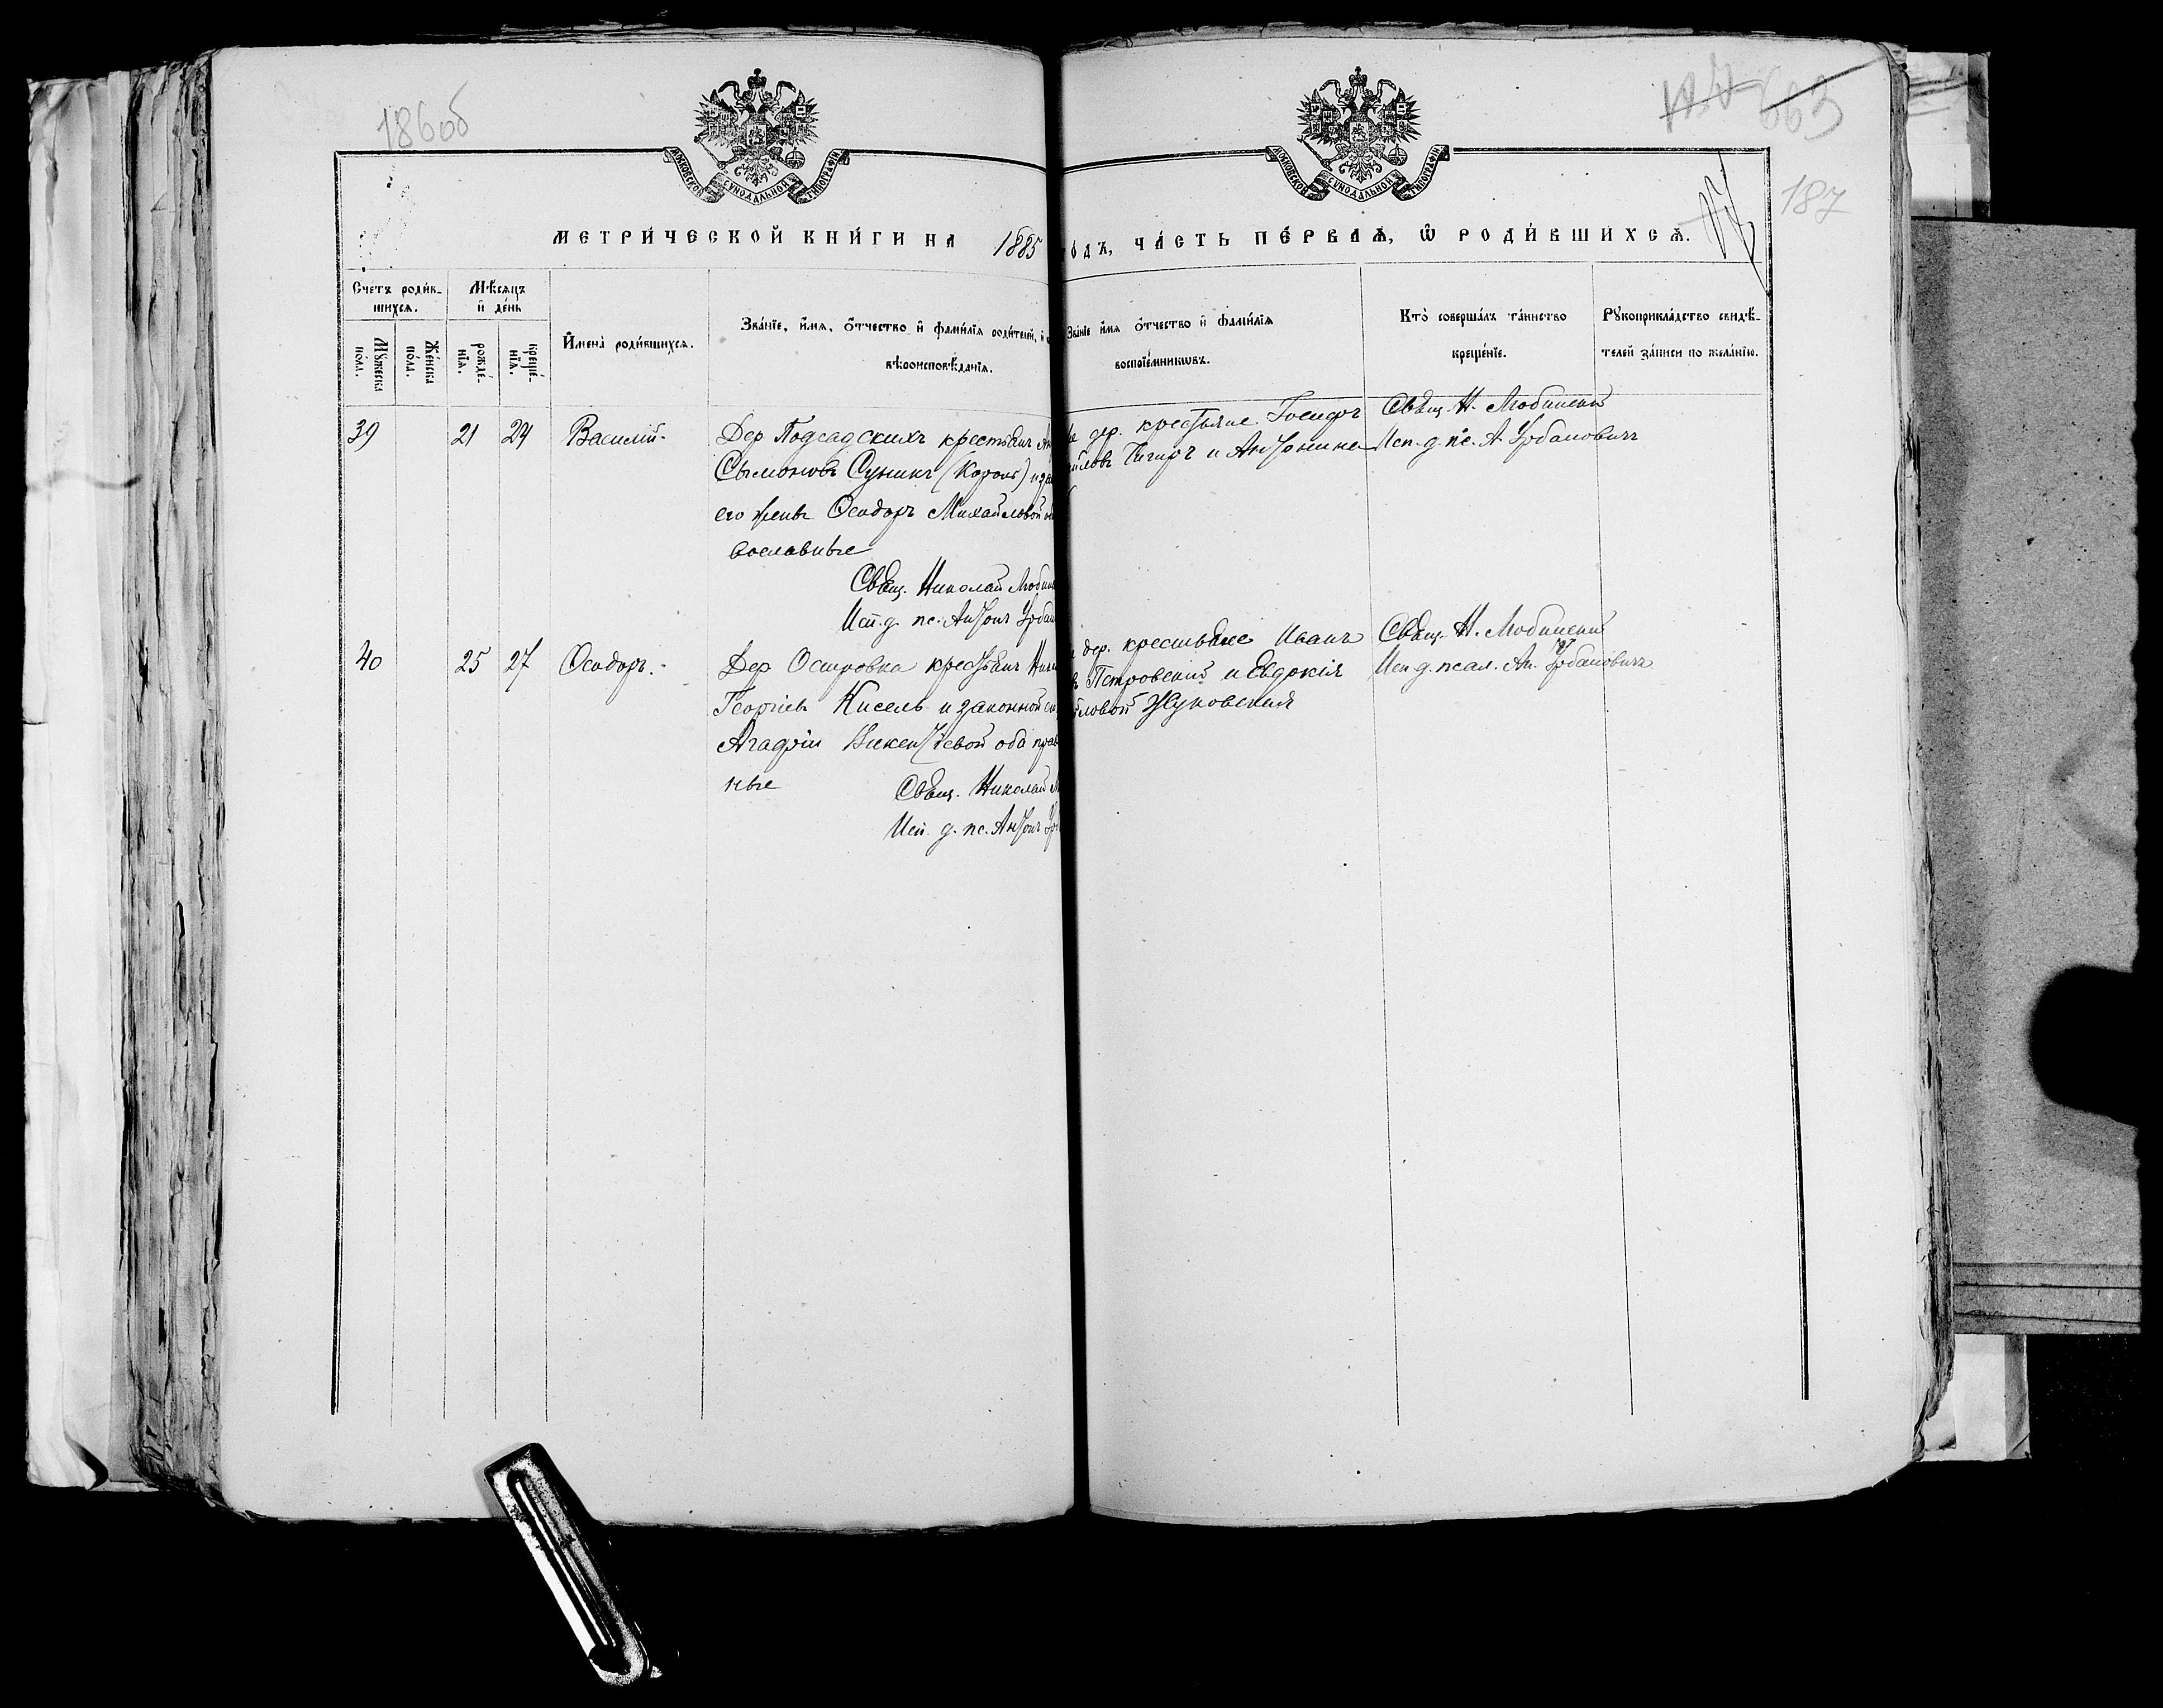 186об
663
187
МОСКОВСКОЙ СѴНОДАЛЬНОЙ ТИПОГРАФІИ
МОСКОВСКОЙ СѴНОДАЛЬНОЙ ТИПОГРАФІИ
МЕТРИ́ЧЕСКОЙ КНИ́ГИ НА 1885
ГО́ДЪ, ЧА́СТЬ ПЕ́РВАѦ, Ѡ РОДИ́ВШИХСѦ.
Счетъ роди́в-
шихсѧ.
Мꙋ́жеска
пола.
Же́нска
по́ла.
Мѣ́сѧцъ
и де́нь
рожде́-
нїѧ.
креще́-
нїѧ.
И҆мена̀ роди́вшихсѧ.
Зва́нїе, и҆́мѧ, ѻ҆́тчество и҆ фамѝлїѧ роди́телей, и҆
вѣроисповѣ́данїѧ.
Зва́нїе и҆́мѧ ѻ҆́тчество и҆ фамѝлїѧ
воспрїе́мникѡвъ.
Кто̀ соверша́лъ та́инство
креще́нїе.
Рꙋкоприкла́дство свидѣ́-
телей за́писи по жела́нїю.
39 21 24 Василій.
Дер Подсадскихъ крестьянъ
Сымоновъ Сушик (Король) и
его жены Ѳеодоръ Михайловой
вославные
Свящ. Николай Любин
Исп. д. пс. Антонъ Урбан
дер. крестьяне Іосифъ
Чигиръ и Антонина
Свящ. Н. Любинскій
Исп. д. пс. А. Урбановичъ
40 25 27 Ѳеодоръ.
Дер Островка крестьянъ
Георгіевъ Кисель и законной
Агафіи Викентіевой оба прав
ные
Свящ. Николай
Исп. д. пс. Антонъ Ур
дер. крестьяне Иванъ
Петровскій и Евдокія
ловой Жуковскія
Свящ. Н. Любинскій
Исп. д. псал. Ан. Урбановичъ